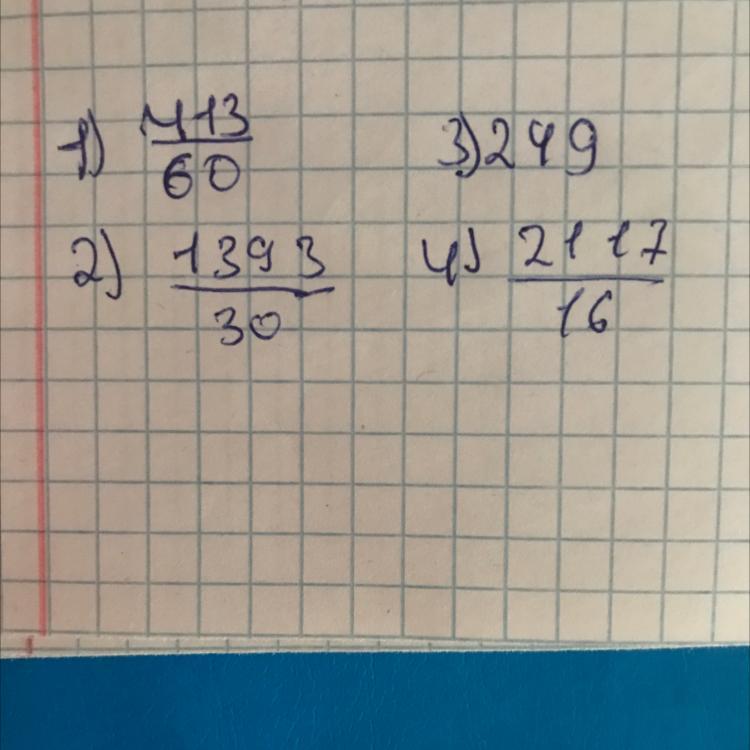 1) 413/60
3) 249
2) 1393/30
4) 2117/16